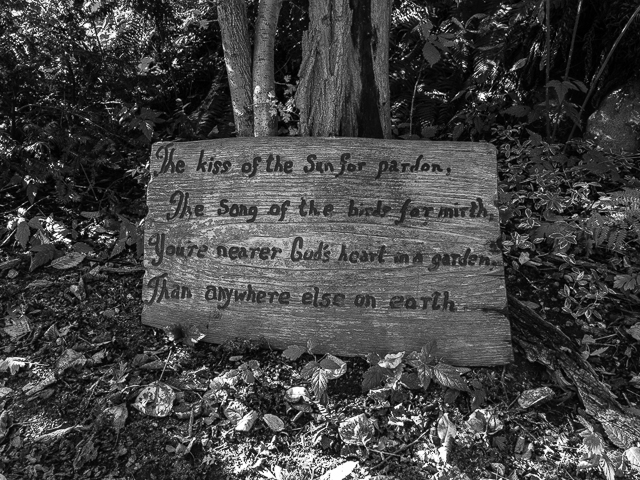 The kiss of the Sun for pardon,
The Song of the birds for mirth,
You're nearer God's heart in a garden
Than anywhere else on earth